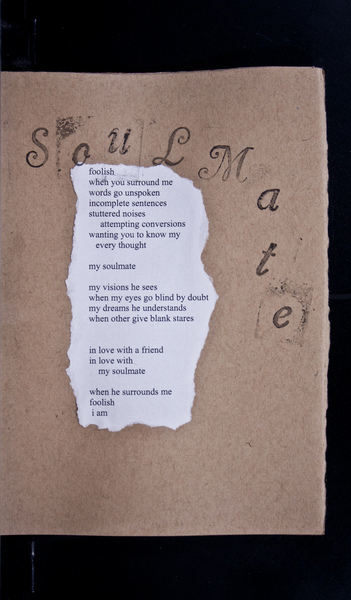 SouLMate
foolish
when you surround me
words go unspoken
incomplete sentences
stuttered noises
attempting conversions
wanting you to know my
every thought
my soulmate
my visions he sees
when my eyes go blind by doubt
my dreams he understands
when other give blank stares
in love with a friend
in love with
my soulmate
when he surrounds me
foolish
i am